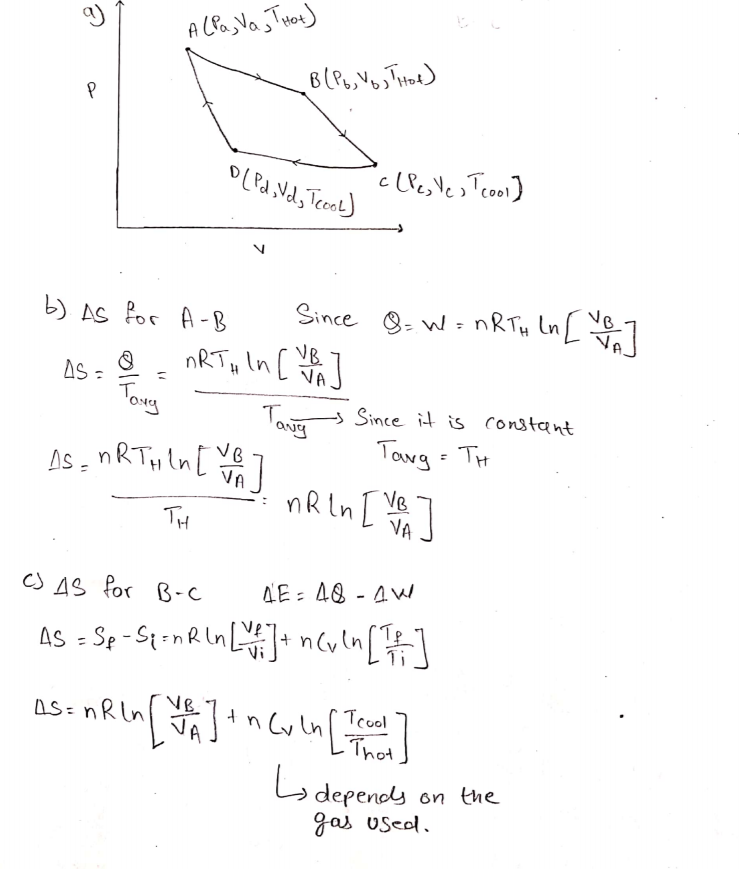 a)
A(Pa,Va,THot)
P
B(Pb,Vb,THot)
D(Pd,Vd,TCooL)
C(Pc,Vc,Tcool]
V
b) ΔS for A-B Since Q = W = nRTH ln[VB/VA]
ΔS = Q/Tavg = nRTH ln[VB/VA]/Tavg → Since it is constant
Tavg = TH
ΔS = nRTH ln[VB/VA]/TH = nR ln[VB/VA]
c) ΔS for B-C ΔE = ΔQ - ΔW
ΔS = Sf - Si = nR ln[Vf/Vi] + nCv ln[Tf/Ti]
ΔS = nR ln[VB/VA] + nCv ln[Tcool/Thot]
↳ depends on the
gas used.